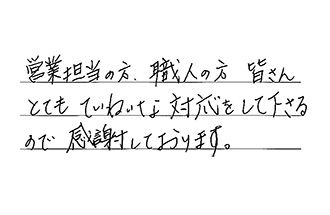 営業担当の方、職人の方 皆さん
とても ていねいな 対応をして下さる
ので 感謝しております。